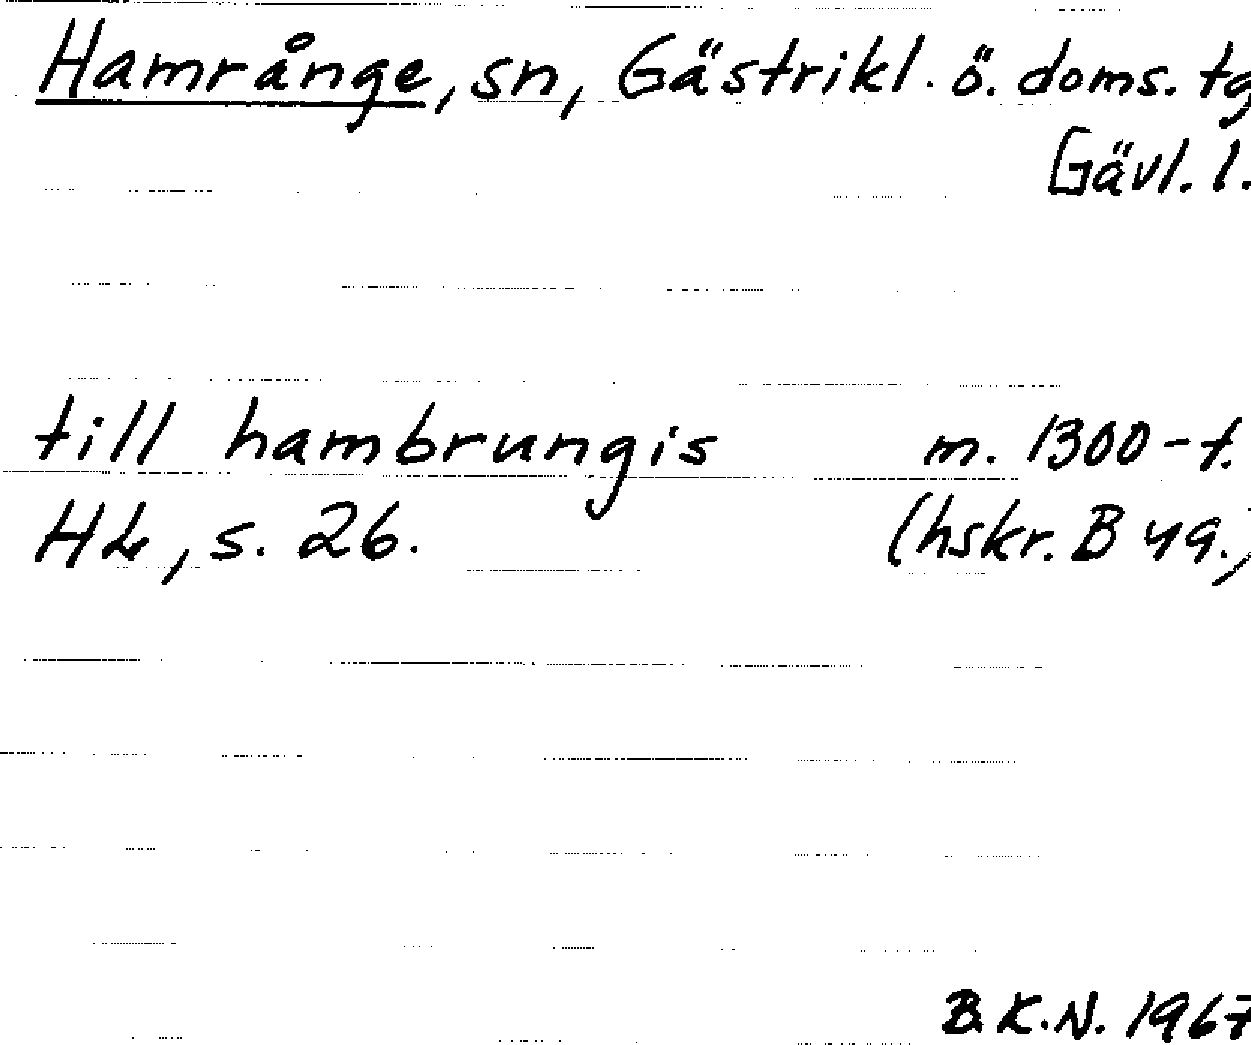 Hamrånge, sn, Gästrikl. ö. doms. tg
Gävl. l.
till hambrungis m. 1300-t.
HL, s. 26. (hskr. B 49.)
B.K.N. 1967